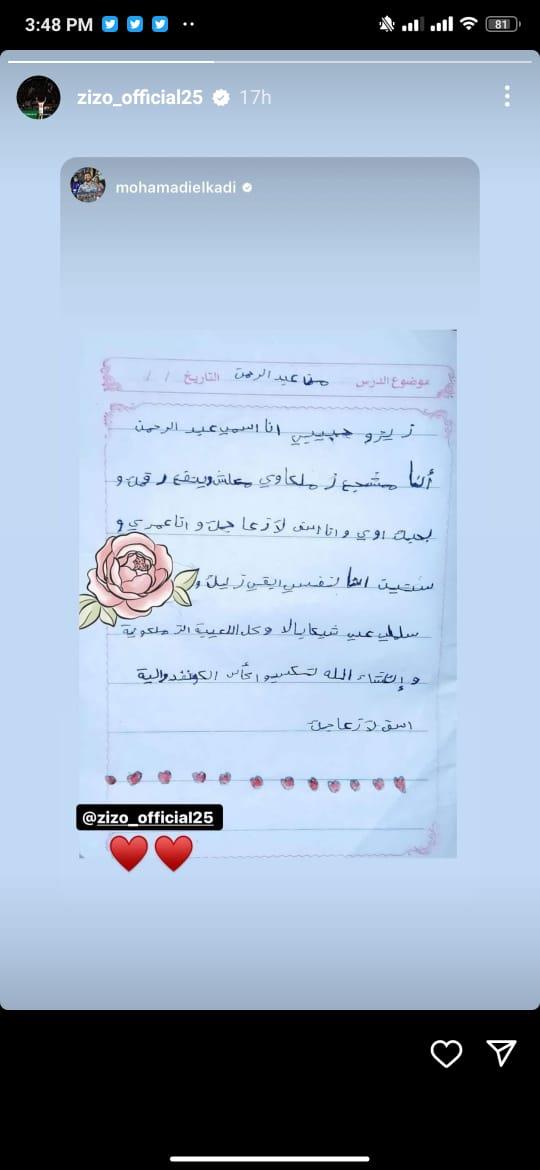 3:48 PM
81
zizo_official25 17h
mohamadielkadi
موضوع الدرس من عبد الرحمن التاريخ / /
زيزو حبيبي انا اسمي عبد الرحمن
أنا مشجع زملكاوي
بحبك اوي و انا اسف لازعاجك و انا عمري
سنين انا نفسي ابقي زيك و
سلملي علي شيكابالا و كل اللعيبة الزملكوية
و إنشاء الله تكسبوا كأس الكونفدرالية
اسف لازعاجك
@zizo_official25